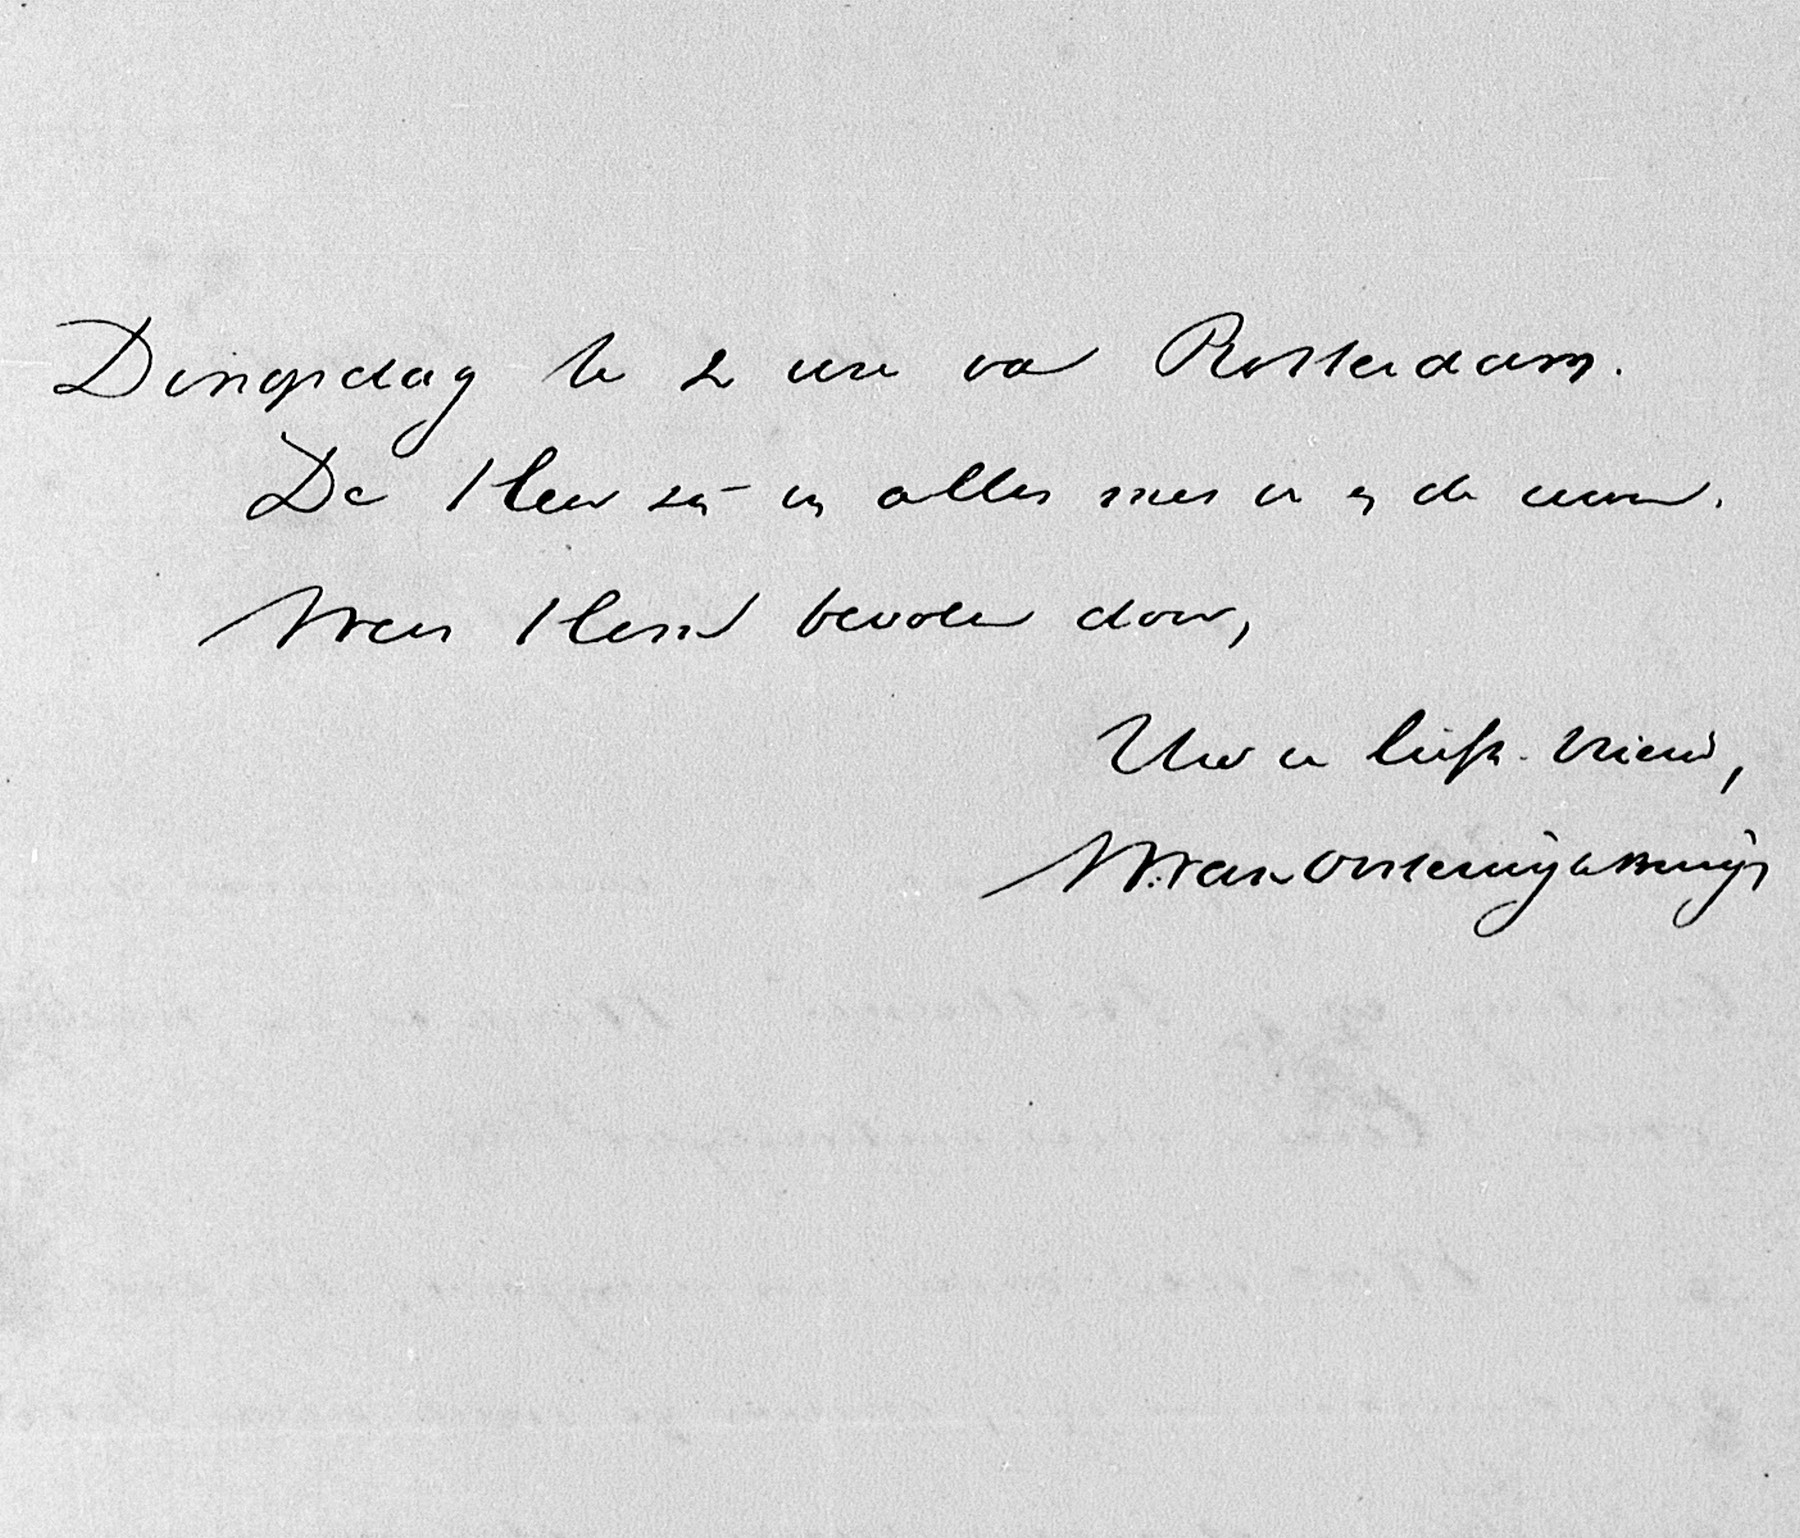 Dingsdag te 2 ure van Rotterdam.
De Heer zij in alles met u en de uwen.
Wees Hem bevolen door,
Uw u liefh. Vriend,
W. van Oosterwijk Bruijn